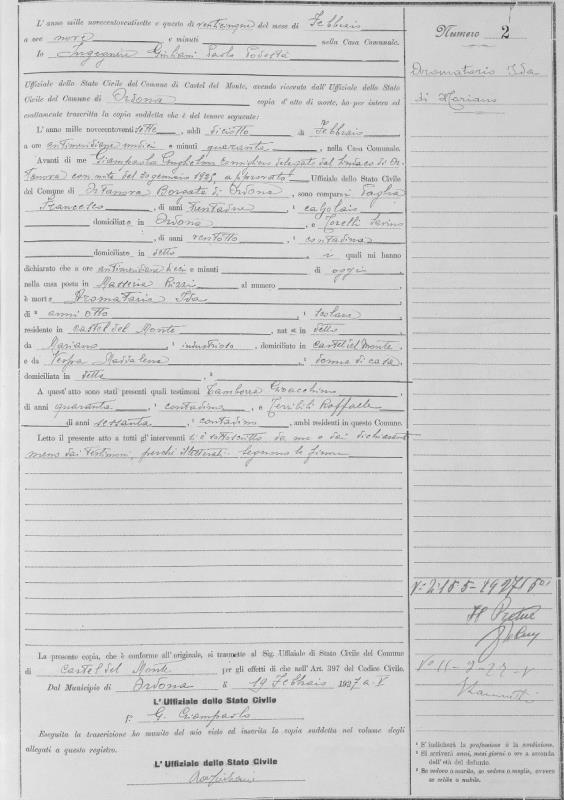 L' anno mille novecentoventisette e questo dì venticinque del mese di Febbraio
a ore nove e minuti nella Casa Comunale.
Io Ingegnere Giuliani Paolo Podestà
Ufficiale dello Stato Civile del Comune di Castel del Monte, avendo ricevuto dall' Ufficiale dello Stato
Civile del Comune di Ordona copia d'atto di morte, ho per intero ed
esattamente trascritta la copia suddetta che è del tenore seguente:
L'anno mille novecentoventisette, addì diciotto di Febbraio
a ore antimeridiane undici e minuti quaranta, nella Casa Comunale.
Avanti di me Giampaolo Guglielmo delegato dal Sindaco di
con nota del 20 gennaio 1925 Ufficiale dello Stato Civile
del Comune di Ortanova Borgata di Ordona, sono comparsi Paglia
Francesco, di anni trentadue, ¹ calzolaio
domiciliato in Ordona, e Torelli
, di anni ventotto, ¹ contadino
domiciliato in detto i quali mi hanno
dichiarato che a ore antimeridiane dieci e minuti di oggi
nella casa posta in Masseria al numero
è morta Aromatario Ida
di ² anni otto, ¹ scolara
residente in Castel del Monte, nata in detto
da Mariano, ¹ industrioso, domiciliato in Castel del Monte
e da Vespa Maddalena, ¹ donna di casa,
domiciliata in detto, ³
A quest' atto sono stati presenti quali testimoni Tamborra Gioacchino,
di anni quaranta, ¹ contadino, e Terribili Raffaele
di anni sessanta, ¹ contadino, ambi residenti in questo Comune.
Letto il presente atto a tutti gl' intervenuti si è sottoscritto da me e dai dichiaranti
meno dai testimoni, perché illetterati. Seguono le firme
La presente copia, che è conforme all' originale, si trasmette al Sig. Uffiziale di Stato Civile del Comune
di Castel del Monte per gli effetti di che nell' Art. 397 del Codice Civile.
Dal Municipio di Ordona li 19 Febbraio 1927 a. V
L' Ufficiale dello Stato Civile
F. G. Giampaolo
Eseguita la trascrizione ho munito del mio visto ed inserita la copia suddetta nel volume degli
allegati a questo registro.
L' Ufficiale dello Stato Civile
Numero 2
Aromatario Ida
di Mariano
¹ S' indicherà la professione o la condizione.
² Si scriverà anni, mesi giorni o ore a seconda dell' età del defunto.
³ Se vedovo o marito, se vedova o moglie, ovvero se celibe o nubile.